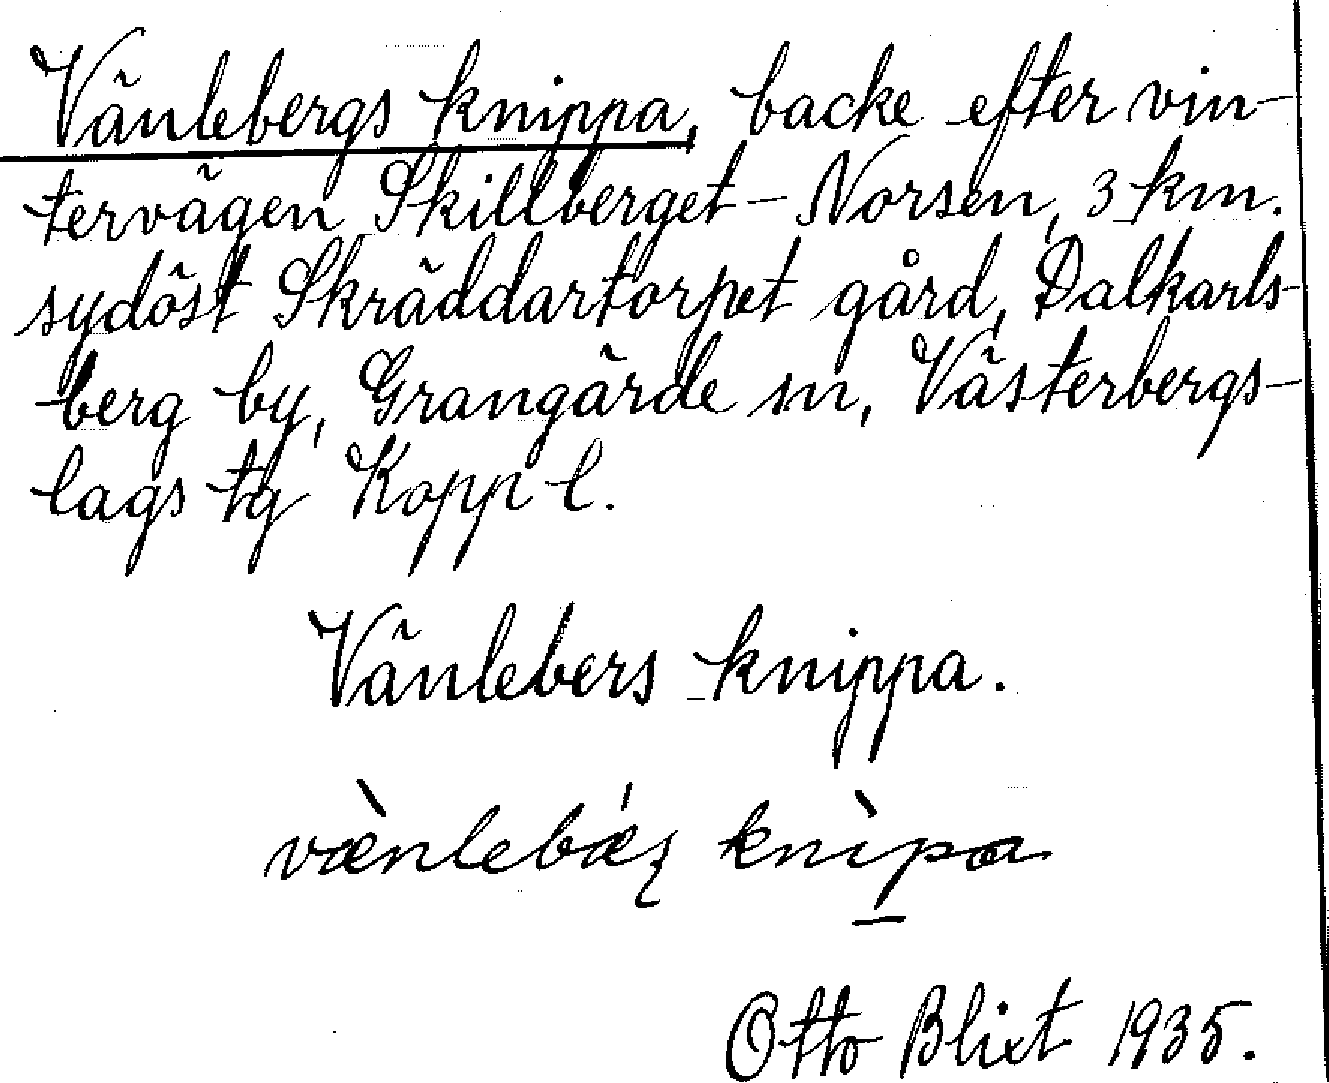 Vänlebergs knippa, backe efter vin-
tervägen Skillberget - Norsen, 3 km.
sydöst Skräddartorpet gård, Dalkarls-
berg by, Grangärde sn, Västerbergs-
lags tg Kopp l.
Vänlebers knippa.
væ̀nlebǽʂ knìpa
Otto Blixt 1935.